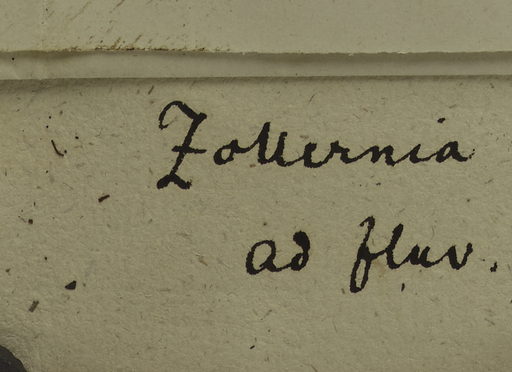 Zollernia
ad fluv.